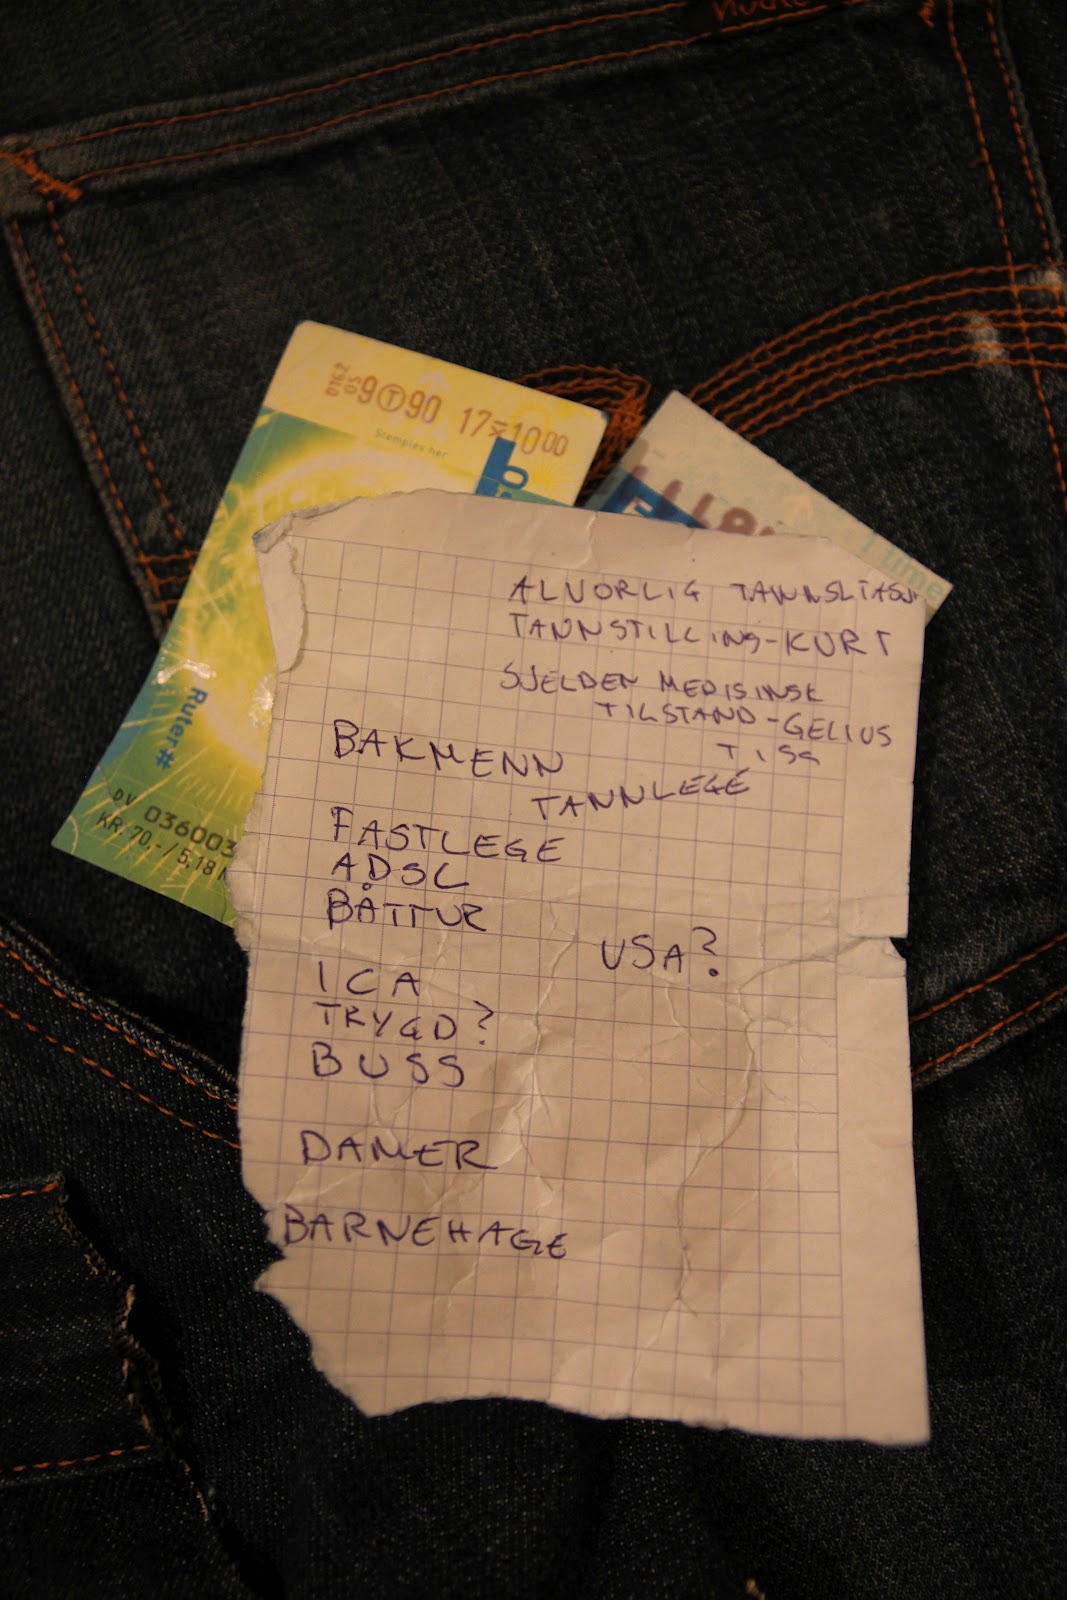 9 T 90 17 10 00
Stemples her
Ruter#
036003
KR. 70,- / 5.18
ALVORLIG TANNSLITASJ
TANNSTILLING-KURT
SJELDEN MEDISINSK
TILSTAND-GELIUS
TISS
BAKMENN
TANNLEGE
FASTLEGE
ADSL
BÅTTUR
USA?
ICA
TRYGD?
BUSS
DAMER
BARNEHAGE